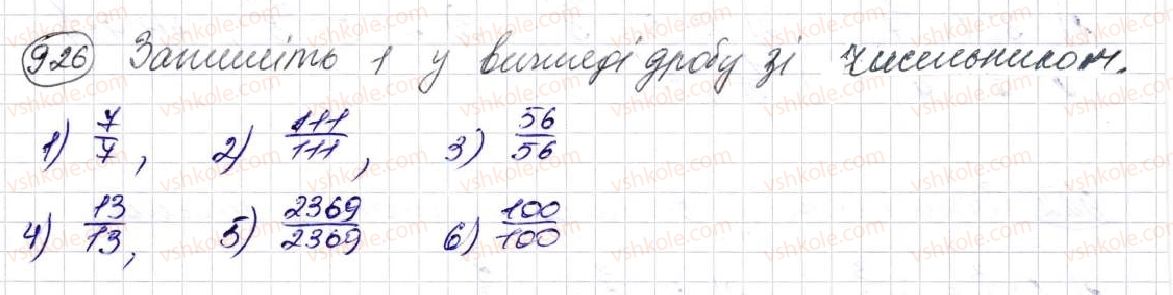 926 Запишіть 1 у вигляді дробу зі чисельником.
1) 7/7, 2) 111/111, 3) 56/56
4) 13/13, 5) 2369/2369 6) 100/100